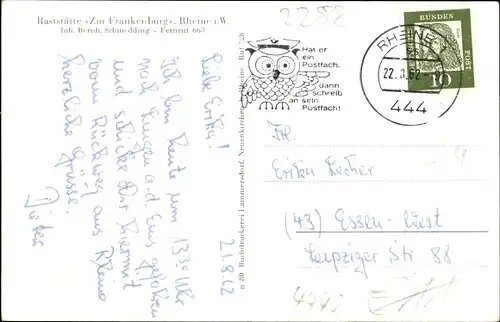 Raststätte »Zur Frankenburg«, Rheine i.W.
Inh. Bernh. Schmedding - Fernruf 663
2288
21.8.62
Liebe Erika!
Ich bin heute um 13.30 Uhr
nach Lingen a.d. Ems gefahren
und schicke Dir hiermit
vom Rückweg aus Rheine
herzliche Grüsse.
Dieter
n 80 Buchdruckerei Lammersdorf, Neuenkirchen
Rheine
Ruf
Hat er
ein
Postfach,
dann
schreib
an sein
Postfach!
RHEINE
22.8.62
444
DEUTSCHE
BUNDES
POST
10
Frl.
Erika Lecher
(43) Essen-West
Leipziger Str 88